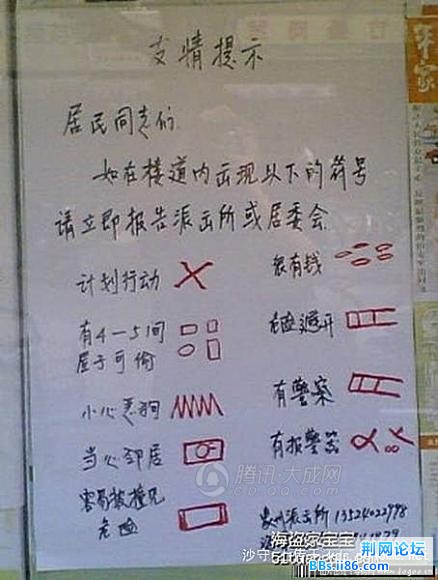 友情提示
居民同志们
如在楼道内出现以下的符号
请立即报告派出所或居委会
计划行动
很有钱
有4-5间
屋子可偷
危险避开
小心恶狗
有警察
当心邻居
有报警器
容易被撞见
危险
派出所 13524022998
腾讯·大成网
海盗家宝宝
荆网论坛
BBs.sii86.com